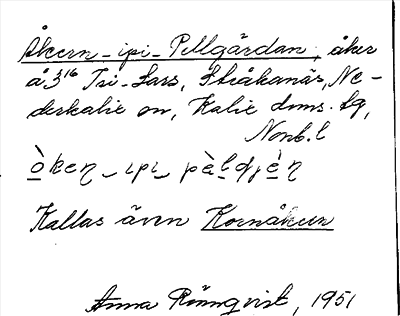 Åkern-ipi-Pellgårdan, åker
å 3¹⁶ Tri-Lars, Stråkanäs, Ne-
derkalix sn, Kalix doms. lg,
Norrb. l
ò̲ken̲-ipi̲-pèl̲djè̲n
Kallas även Kornåkern
Anna Rönnqvist, 1951